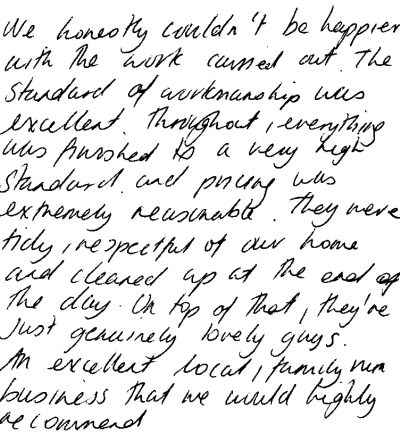 We honestly couldn't be happier
with the work carried out. The
standard of workmanship was
excellent. Throughout, everything
was finished to a very high
standard and pricing was
extremely reasonable. They were
tidy, respectful of our home
and cleaned up at the end of
the day. On top of that, they're
just genuinely lovely guys.
An excellent local, family run
business that we would highly
recommend